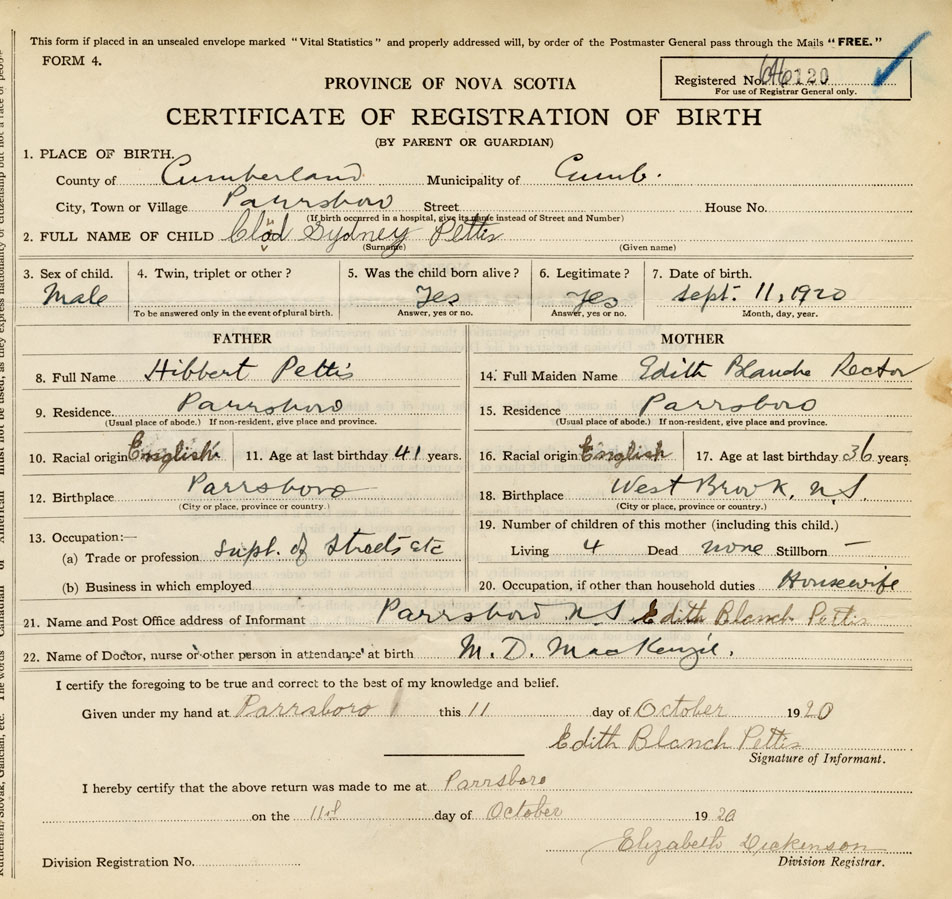 This form if placed in an unsealed envelope marked "Vital Statistics" and properly addressed will, by order of the Postmaster General pass through the Mails "FREE."
FORM 4.
Registered No. 120
For use of Registrar General only.
PROVINCE OF NOVA SCOTIA
CERTIFICATE OF REGISTRATION OF BIRTH
(BY PARENT OR GUARDIAN)
1. PLACE OF BIRTH.
County of Cumberland Municipality of Cumb.
City, Town or Village Parrsboro Street House No.
(If birth occurred in a hospital, give its name instead of Street and Number)
2. FULL NAME OF CHILD Sydney Pettis
(Surname) (Given name)
3. Sex of child. 4. Twin, triplet or other? 5. Was the child born alive? 6. Legitimate? 7. Date of birth.
Male Yes Yes sept. 11, 1920
To be answered only in the event of plural birth. Answer, yes or no. Answer, yes or no. Month, day, year.
FATHER MOTHER
8. Full Name Hibbert Pettis 14. Full Maiden Name Edith Blanche Rector
9. Residence. Parrsboro 15. Residence Parrsboro
(Usual place of abode.) If non-resident, give place and province. (Usual place of abode.) If non-resident, give place and province.
10. Racial origin English 11. Age at last birthday 41 years. 16. Racial origin English 17. Age at last birthday 36 years.
12. Birthplace Parrsboro 18. Birthplace West Brook, N.S.
(City or place, province or country.) (City or place, province or country.)
13. Occupation:— 19. Number of children of this mother (including this child.)
(a) Trade or profession supt. of streets etc Living 4 Dead none Stillborn —
(b) Business in which employed 20. Occupation, if other than household duties Housewife
21. Name and Post Office address of Informant Parrsboro N.S. Edith Blanch Pettis
22. Name of Doctor, nurse or other person in attendance at birth M. D. MacKenzie.
I certify the foregoing to be true and correct to the best of my knowledge and belief.
Given under my hand at Parrsboro this 11 day of October 1920
Edith Blanch Pettis
Signature of Informant.
I hereby certify that the above return was made to me at Parrsboro
on the 11 day of October 1920
Elizabeth Dickenson
Division Registration No. Division Registrar.